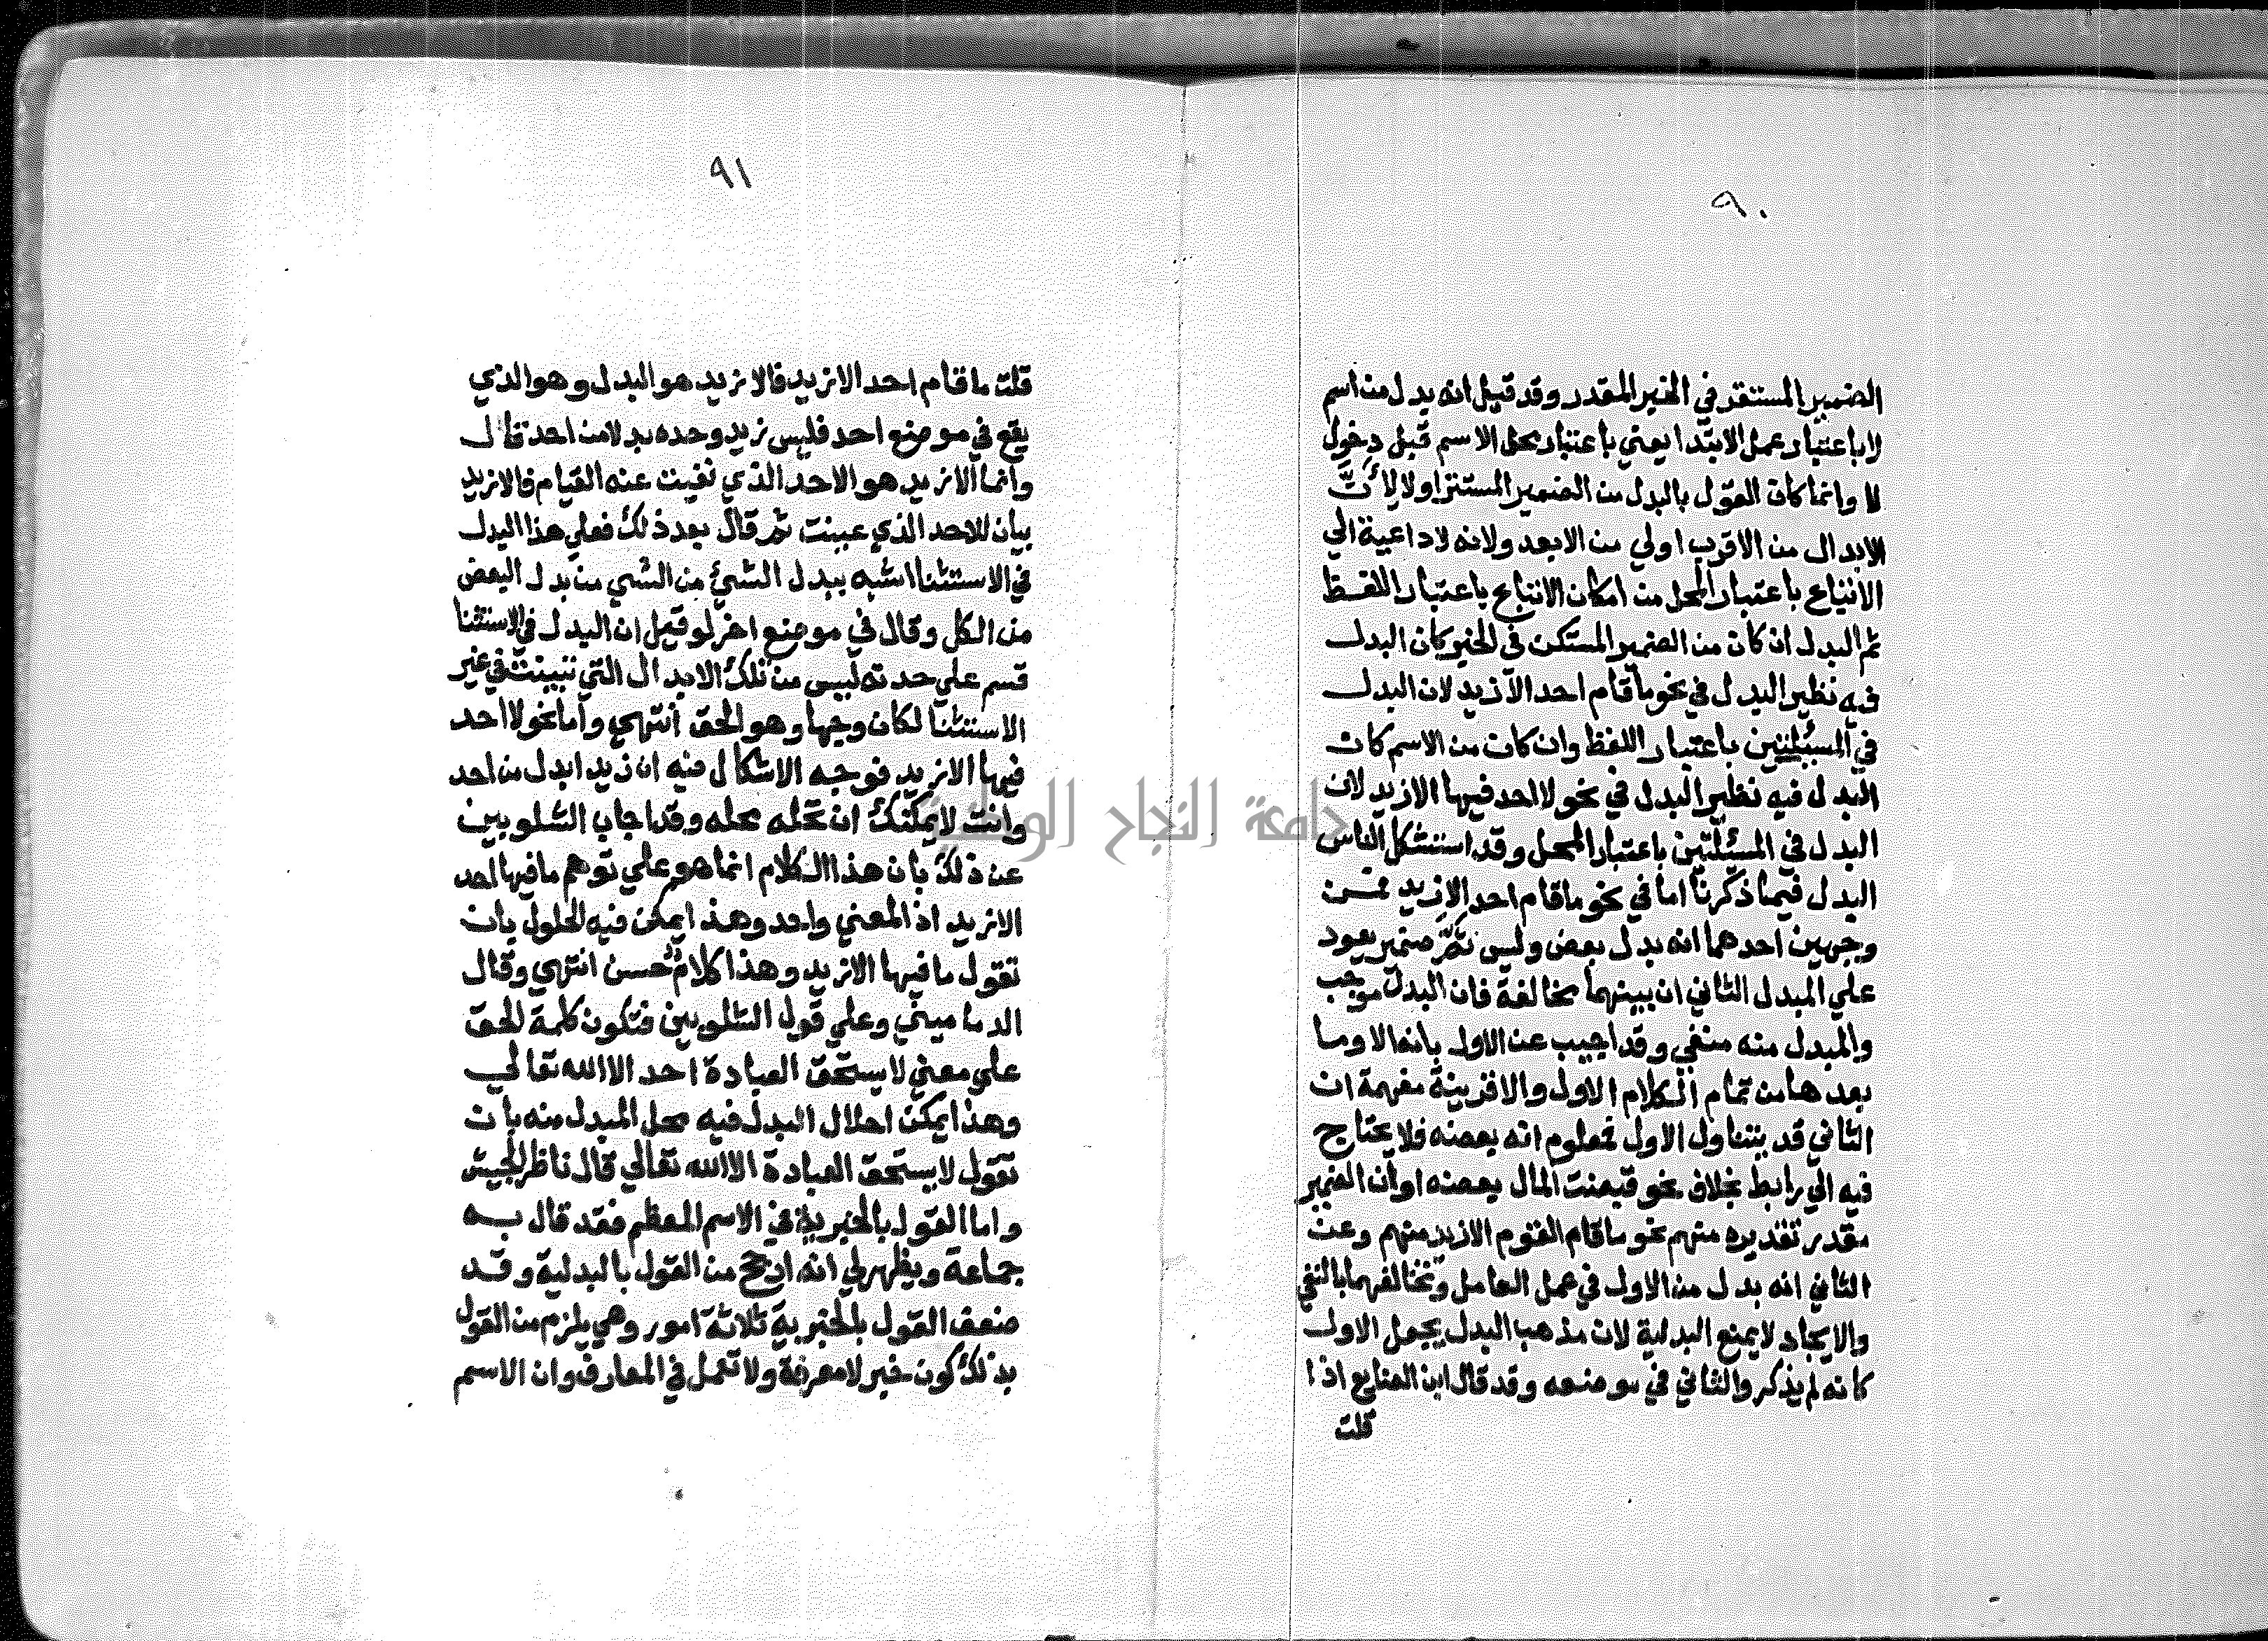 ٩٠
الضمير المستتر في الخبر المقدر وقد قيل انه بدل من اسم
لا باعتبار عمل الابتدا يعني باعتبار محل الاسم قبل دخول
لا وانما كان القول بالبدل من الضمير المستتر اولا لان
الابدال من الاقرب اولي من الابعد ولانه لا داعية الي
الاتباع باعتبار المحل من امكان الاتباع باعتبار اللفظ
ثم البدل ان كان من الضمير المستكن في الخبر كان البدل
فيه نظير البدل في نحو ما قام احد الا زيد لان البدل
في المسئلتين باعتبار اللفظ وان كان من الاسم كان
البدل فيه نظير البدل في نحو لا احد فيها الا زيد لان
البدل في المسئلتين باعتبار المحل وقد استشكل الناس
البدل فيما ذكرنا اما في نحو ما قام احد الا زيد فمن
وجهين احدهما انه بدل بعض وليس ثم ضمير يعود
علي المبدل الثاني ان بينهما مخالفة فان البدل موجب
والمبدل منه منفي وقد اجيب عن الاول بانه الا وما
بعدها من تمام الكلام الاول والا قرينة مفهمة ان
الثاني قد يتناول الاول فمعلوم انه بعضه فلا يحتاج
فيه الي رابط بخلاف نحو قبضت المال بعضه او ان الضمير
مقدر تقديره منهم نحو ما قام القوم الا زيد منهم وعن
الثاني انه بدل من الاول في عمل العامل وتخالفهما بالنفي
والايجاد لا يمنع البدلية لان مذهب البدل يجعل الاول
كانه لم يذكر والثاني في موضعه وقد قال ابن الضايع اذا
قلت
٩١
قلت ما قام احد الا زيد فالا زيد هو البدل وهو الذي
يقع في موضع احد فليس زيد وحده بدلا من احد قال
وانما الا زيد هو الاحد الذي نفيت عنه القيام فالا زيد
بيان للاحد الذي عينت ثم قال بعد ذلك فعلي هذا البدل
في الاستثنا اشبه ببدل الشئ من الشي من بدل البعض
من الكل وقال في موضع اخر لو قيل ان البدل في الاستثنا
قسم علي حدته ليس من تلك الابدال التي تبينت في غير
الاستثنا لكان وجها وهو الحق انتهي واما نحو لا احد
فيها الا زيد فوجه الاشكال فيه ان زيد ابدل من احد
وانت لا يمكنك ان تحله محله وقد اجاب الشلوبين
عن ذلك بان هذا الكلام انما هو علي توهم ما فيها احد
الا زيد اذ المعني واحد وهذا يمكن فيه الحلول بان
تقول ما فيها الا زيد وهذا كلام حسن انتهي وقال
الدماميني وعلي قول الشلوبين فتكون كلمة الحق
علي معني لا يستحق العبادة احد الا الله تعالي
وهذا يمكن احلال البدل فيه محل المبدل منه بان
تقول لا يستحق العبادة الا الله تعالي قال ناظر الجيش
واما القول بالخبرية في الاسم المعظم فقد قال به
جماعة ويظهر لي انه ارجح من القول بالبدلية وقد
ضعف القول بالخبرية ثلاثة امور وهي يلزم من القول
بذلك كون خبر لا معرفة ولا تعمل في المعارف وان الاسم
جامعة النجاح الوطنية